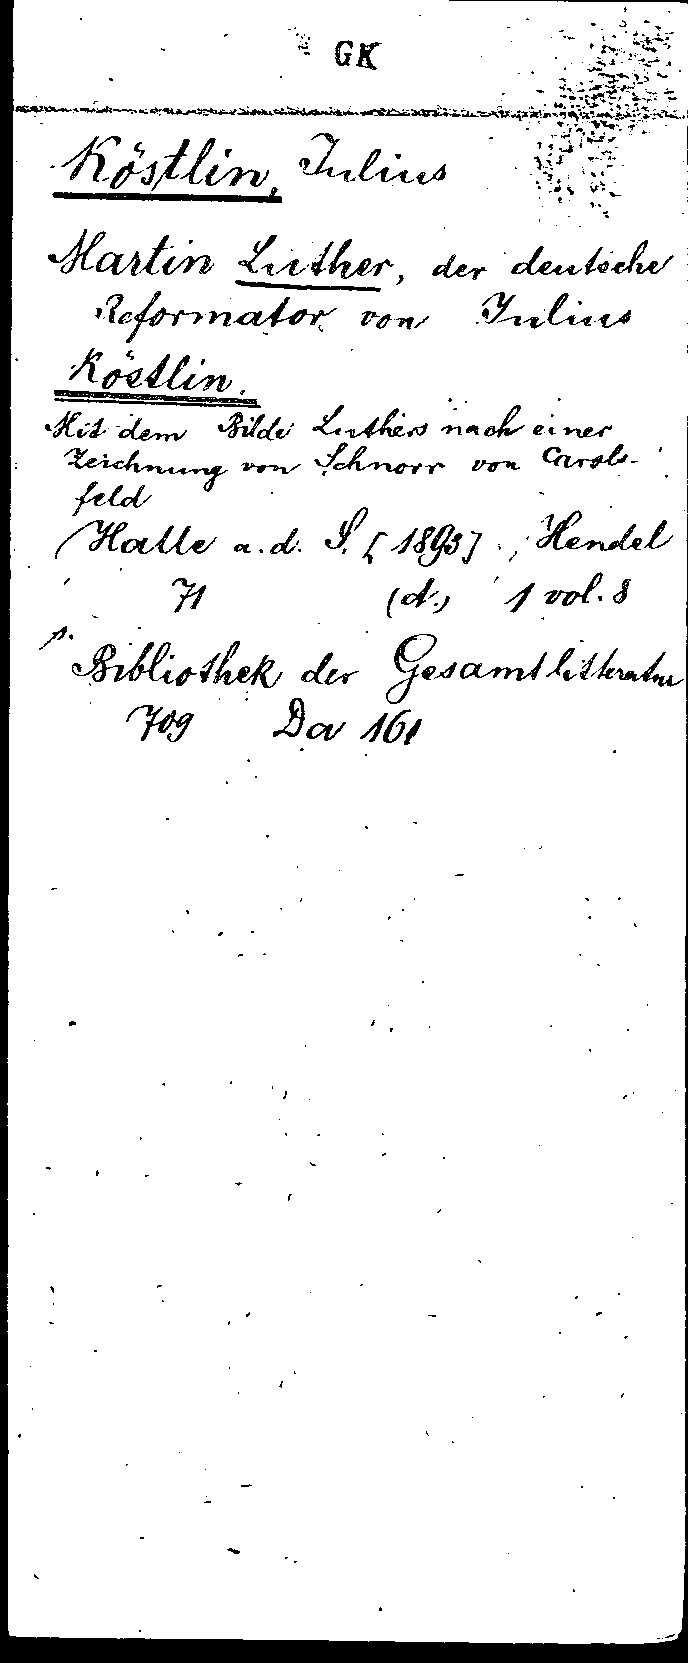 GK
Köstlin, Julius
Martin Luther, der deutsche
Reformator von Julius
Köstlin.
Mit dem Bilde Luthers nach einer
Zeichnung von Schnorr von Carols-
feld
Halle a. d. S. [1893], Hendel
71 (d.) 1 vol. 8
Bibliothek der Gesamtlitteratur
709 Da 161